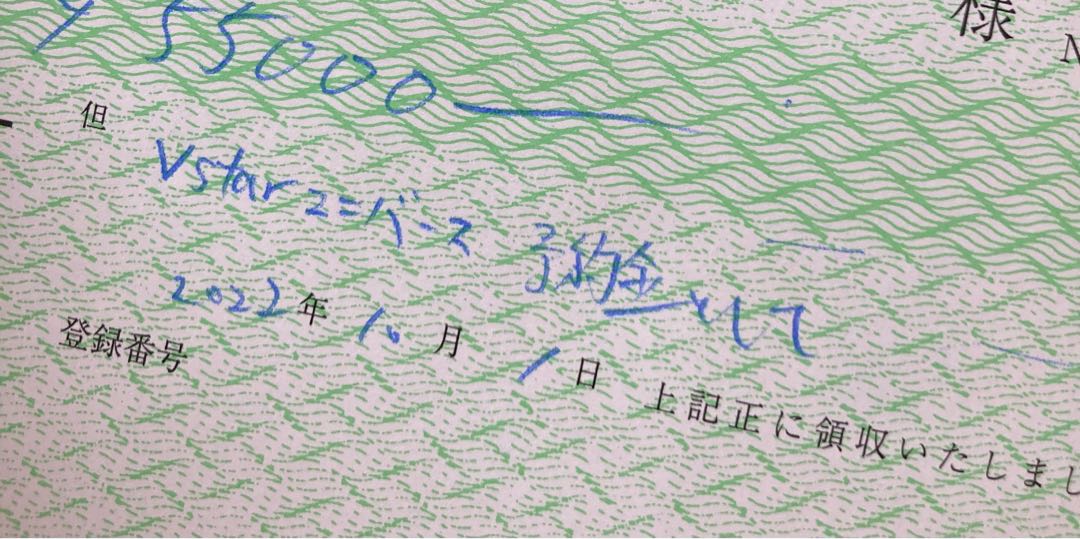 様
N
¥55000
但
Vstarユニバース 予約金として
2022年10月1日 上記正に領収いたしまし
登録番号